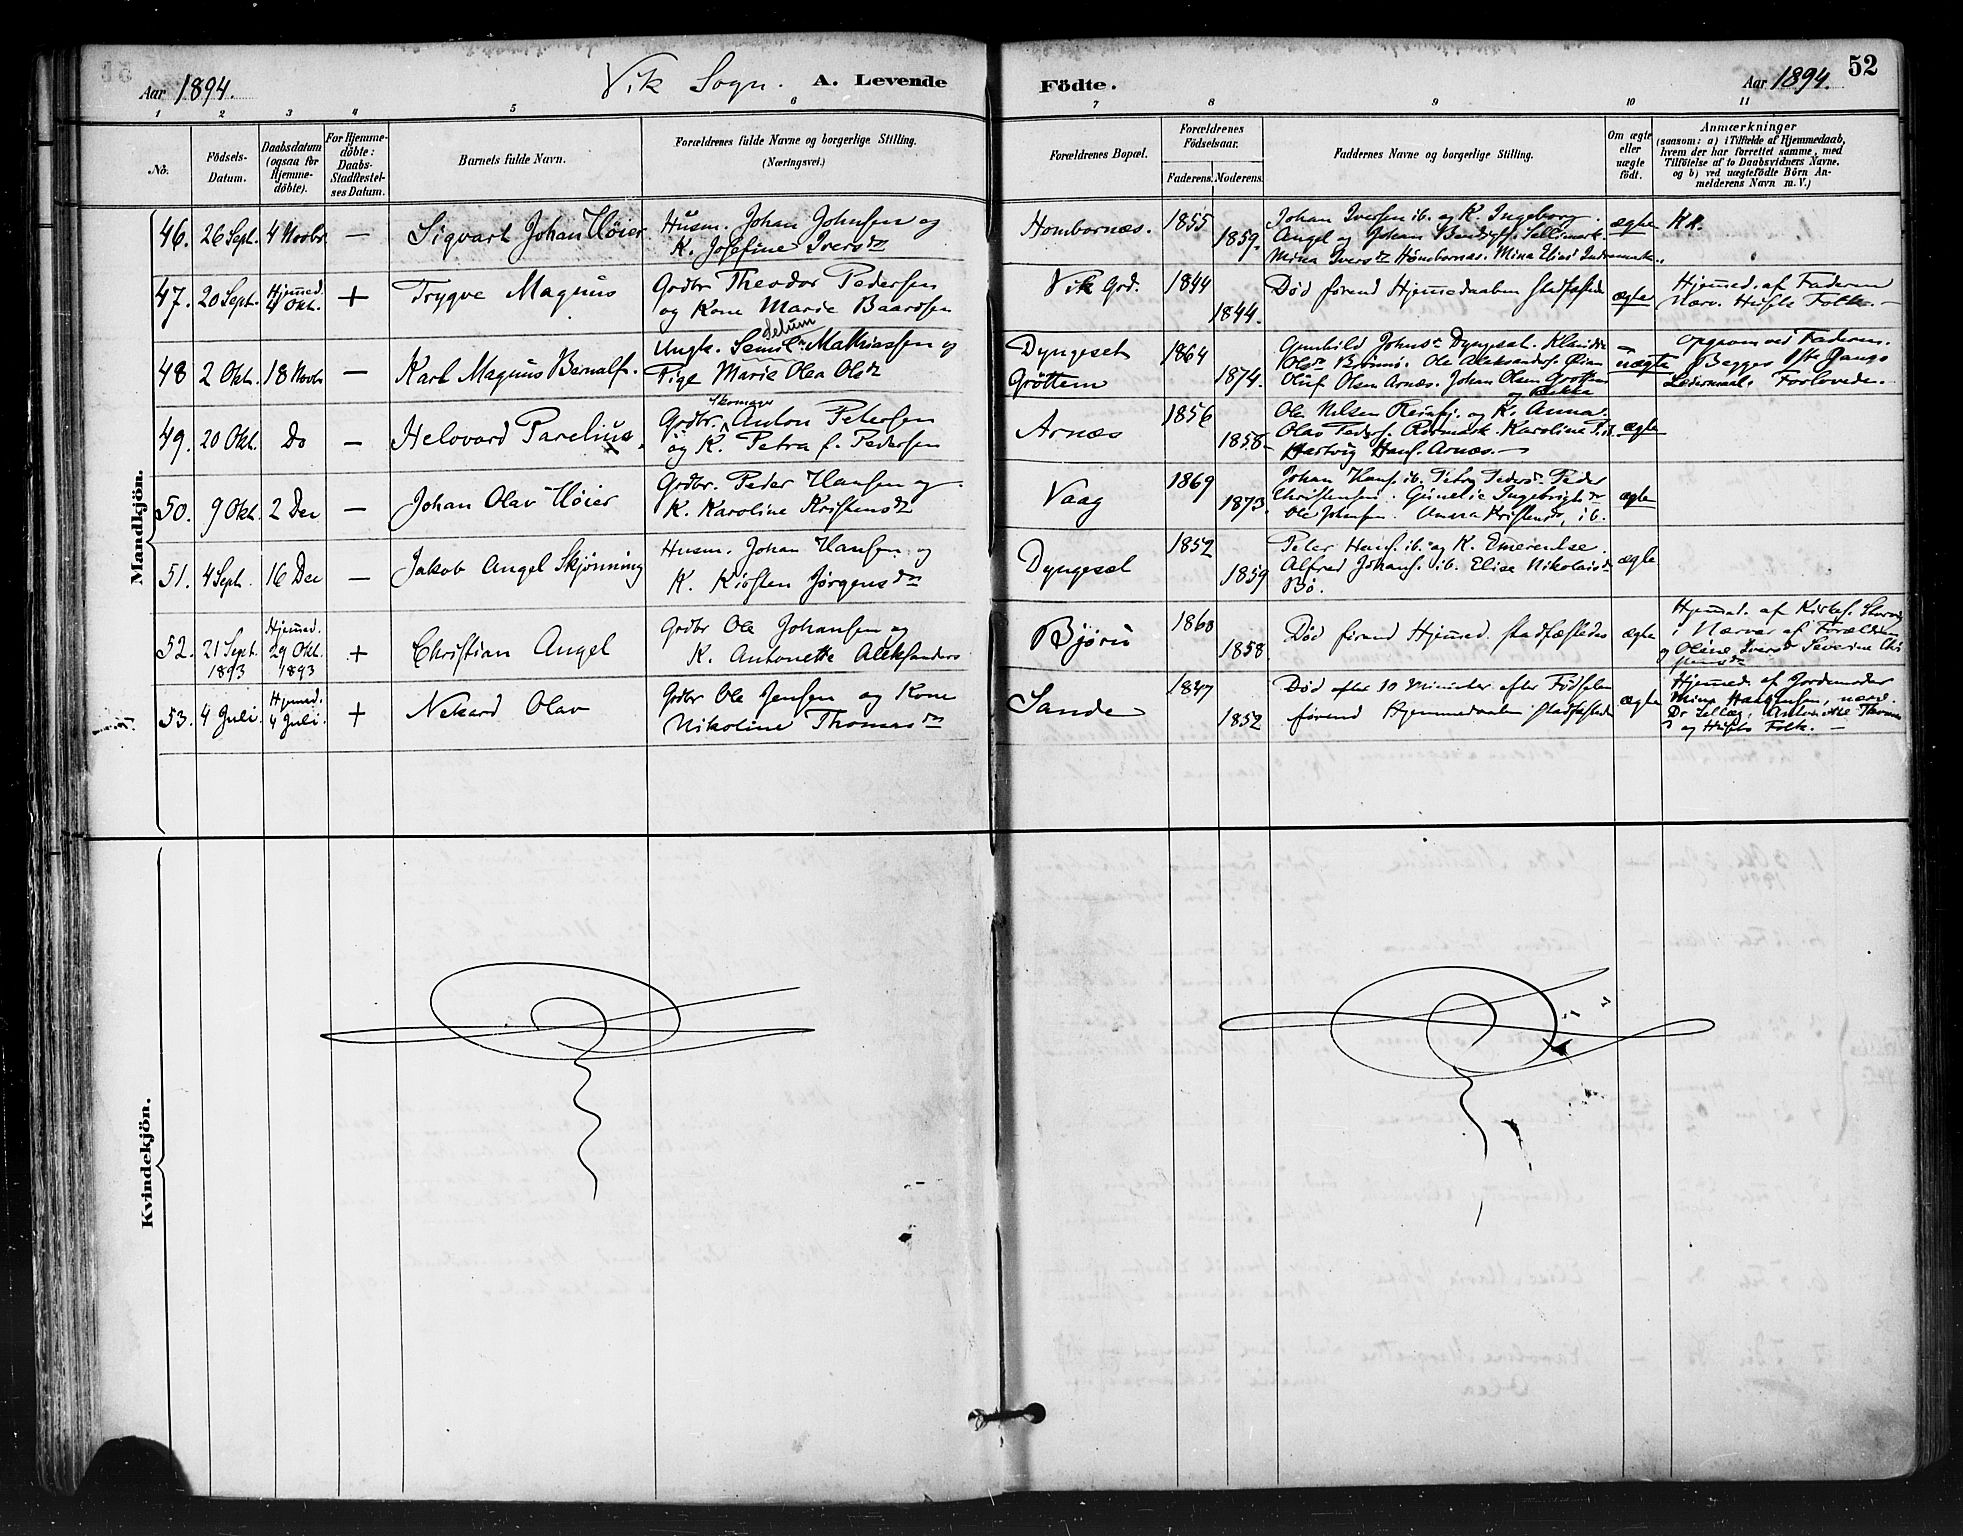 Aar 1894.
Vik Sogn. A. Levende
Födte.
Aar 1894.
52
1 2 3 4 5 6 7 8 9 10 11
No.
Födsels-Datum.
Daabsdatum (ogsaa for Hjemmedöbte).
For Hjemmedöbte: Daabs-Stadfæstelses Datum.
Barnets fulde Navn.
Forældrenes fulde Navne og borgerlige Stilling. (Næringsvei.)
Forældrenes Bopæl.
Forældrenes Födselsaar.
Faderens. Moderens.
Faddernes Navne og borgerlige Stilling.
Om ægte eller uægte födt.
Anmærkninger
(saasom: a) i Tilfælde af Hjemmedaab, hvem der har forrettet samme, med Tilföielse af to Daabsvidners Navne, og b) ved uægtefödte Börn Anmelderens Navn m. V.)
Mandkjön.
46. 26 Sept. 4 Novbr — Sigvart Johan Høier
Husm. Johan Johnsen og
K. Josefine Iversdr
Hombornæs. 1855 1859.
Johan Iversen ib. og K. Ingeborg.
Angel og Johan
Mina Iversdr Hombornæs. Mina
ægte
47. 20 Sept. Hjemmed. 4 Okt. + Trygve Magnus
Grdbr Theodor Pedersen
og Kone Marie Baardsen
Vik Grd. 1844 1844.
Død førend Hjemmedaaben stadfæstedes
ægte
Hjemmed. af Faderen
Nærv. Husets Folk. —
48 2 Okt. 18 Novbr — Karl Magnus Bernalf.
Ungk. Mathiassen og
Pige Marie Olea Olsdr
Dyngeset
Grøttem
1864 1874.
Gunhild Johnsdr Dyngeset.
Olsdr Brønnø. Ole Aleksanders.
Oluf Olsen Arnæs. Johan Olsen Grøttem
uægte
Opgom ved Faderen.
Begges 1ste Gangs
Leiermaal. Forlovede. —
49. 20 Okt. Do — Helovard Parelius.
Grdbr. Skomager Anton Petersen
og K. Petra f. Pedersen
Arnæs 1856 1858
Ole Nilsen og K. Anna.
Olav Peders. Karoline
Hartvig Hans. Arnæs. —
ægte
50. 9 Okt. 2 Dec — Johan Olav Høier
Grdbr. Peder Hansen og
K. Karoline Kristensdr
Vaag 1869 1873.
Johan Hans. ib. Petra Pedersdr Peder
Christensen. Gunelie Ingebrigtsdr
Ole Johnsen. Anna Kristensdr, ib.
ægte
51. 4 Sept. 16 Dec — Jakob Angel Skjønning
Husm. Johan Hansen og
K. Kirsten Jørgensdr
Dyngeset 1852 1859
Peter Hans. ib. og K. Emerentse.
Alfred Johans. ib. Elise Nikolaisdr
Bø.
ægte
52. 21 Sept. 1893 Hjemmed. 29 Okt. 1893 + Christian Angel
Grdbr Ole Johansen og
K. Antonette Aleksanders
Bjørn 1860 1858.
Død førend Hjemmed. stadfæstedes
ægte
Hjemmed. af Kirkes.
i Nærvær af Forældrene
og Oline Iversdr Severine
53. 4 Juli. Hjemmed. 4 Juli. + Nekard Olav
Grdbr Ole Jensen og Kone
Nikoline Thomasdr
Sande 1847 1852
Død efter 10 Minuter efter Fødselen
førend Hjemmedaaben stadfæstedes
ægte
Hjemmed. af Jordemoder
Mina
og Husets Folk. —
Kvindekjön.